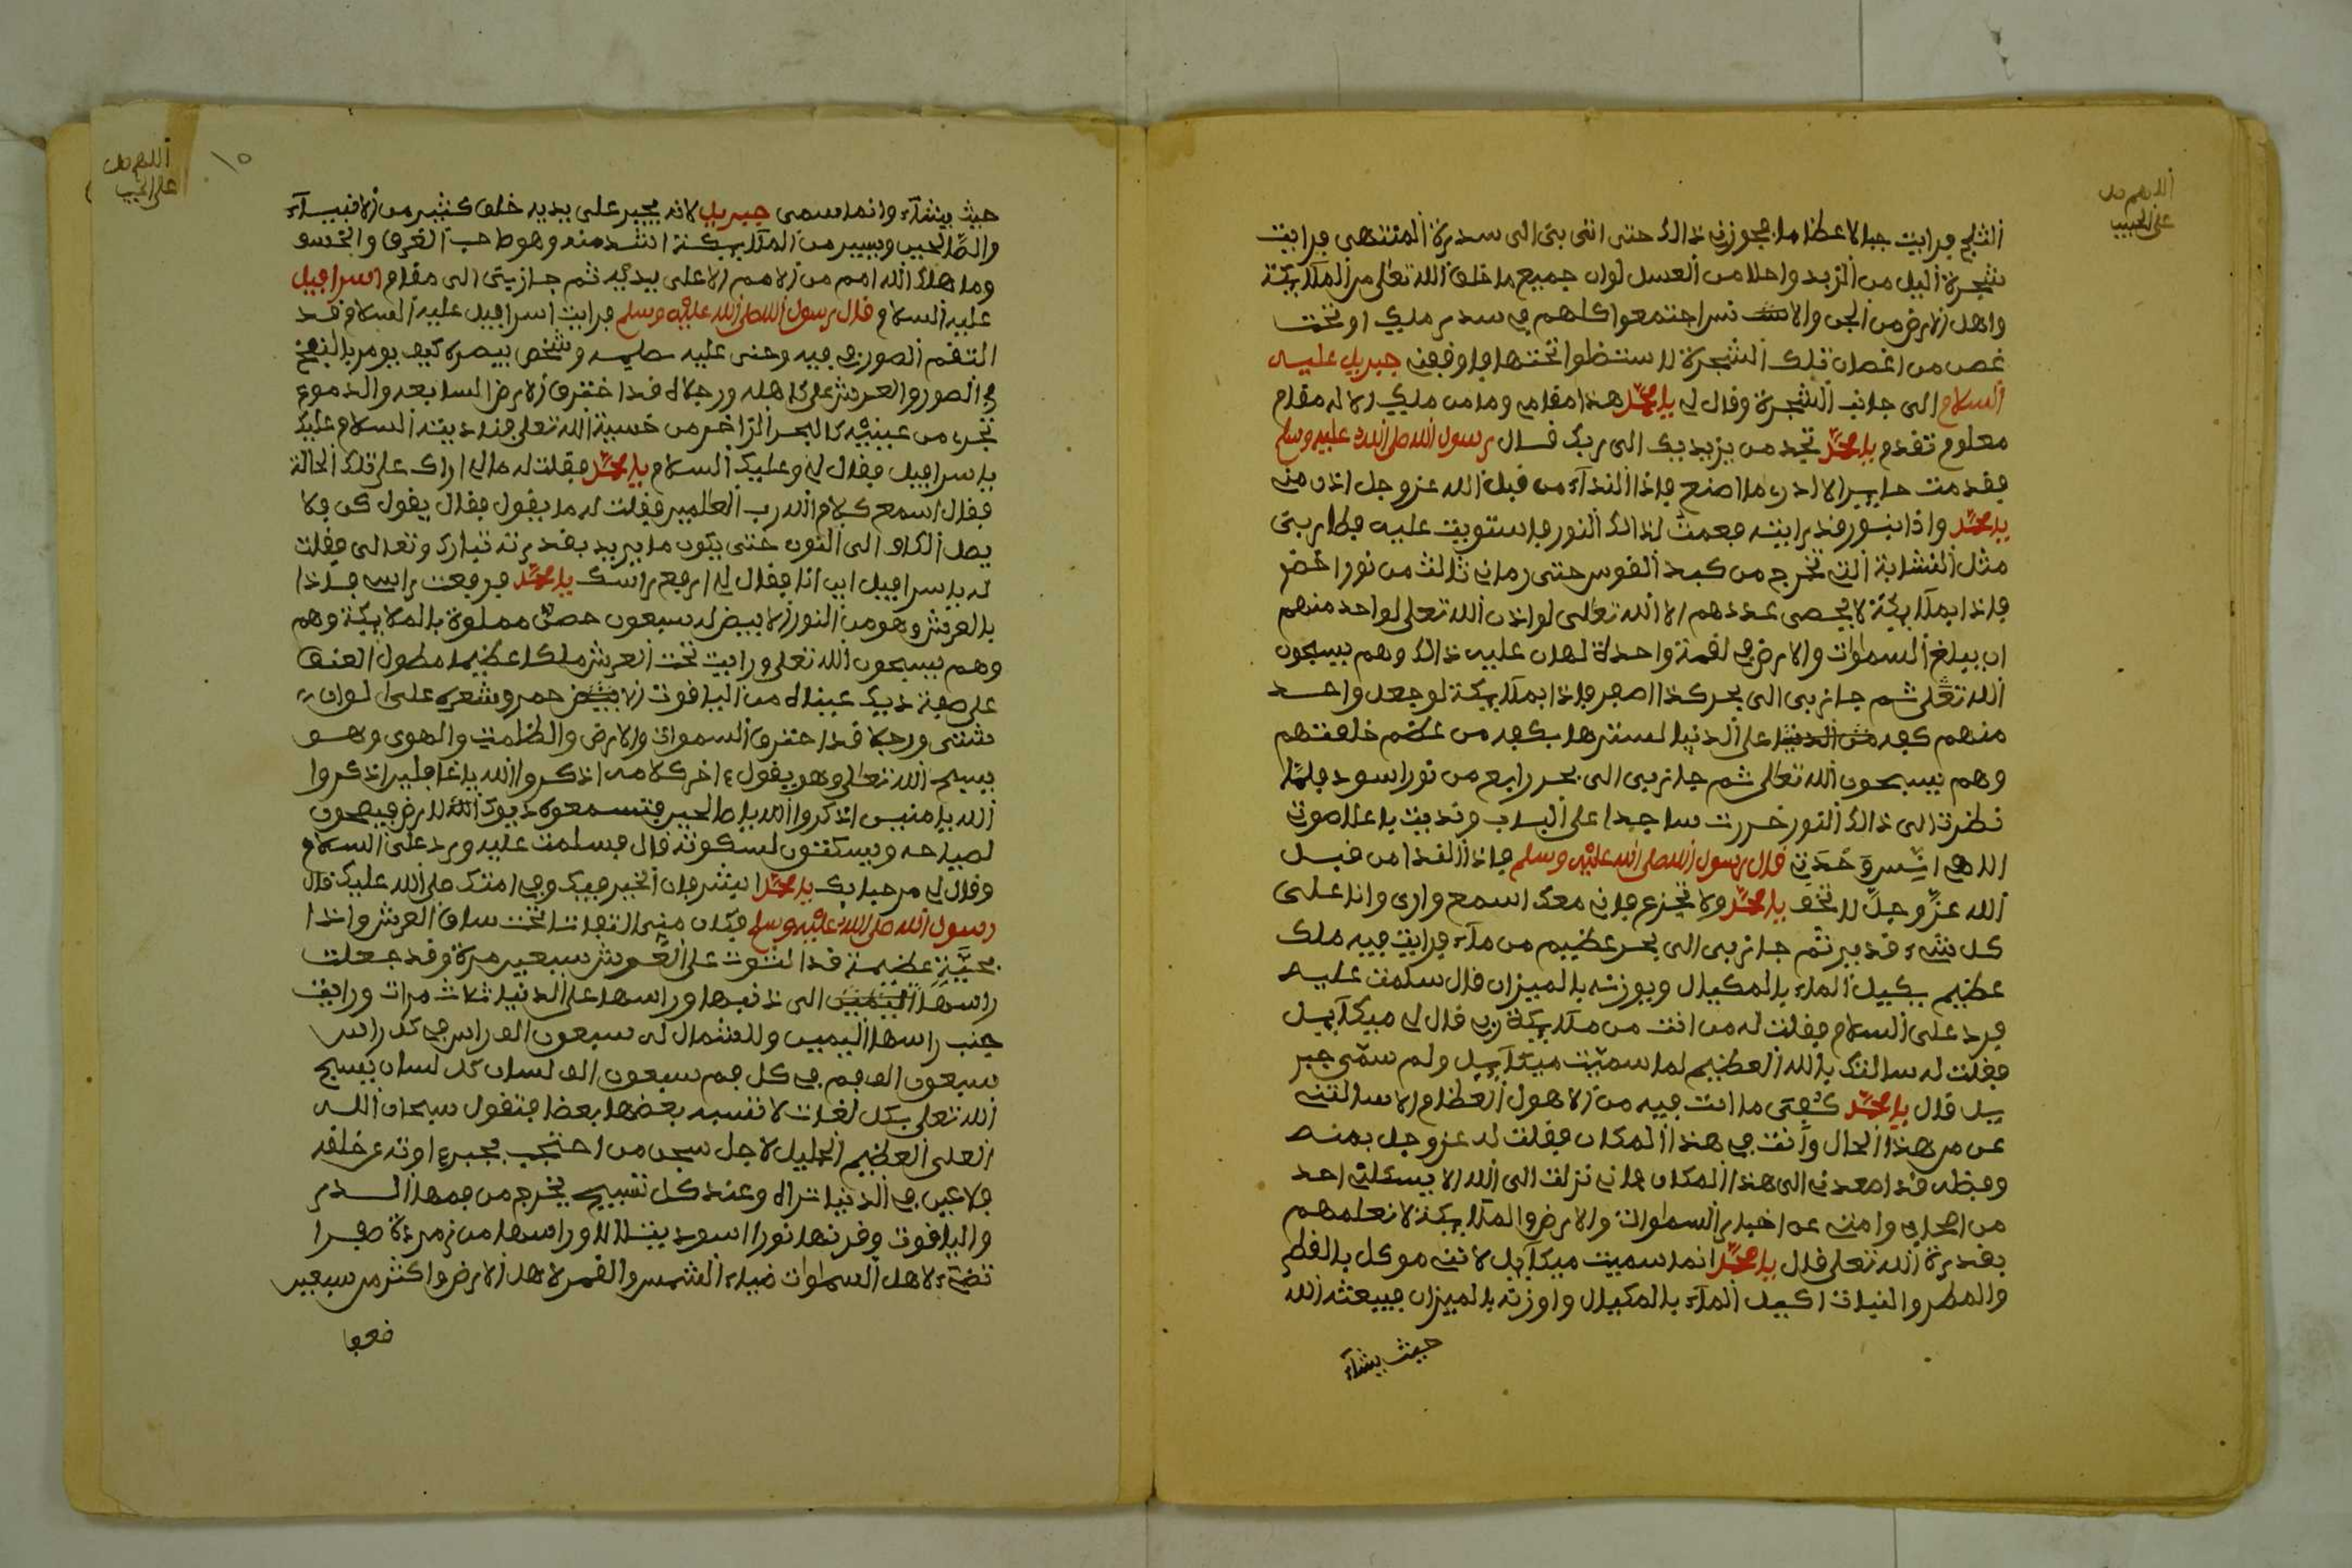 اللهم صل
على الحبيب
الثلج فرايت جبالا عظاما فجوزني ذالك حتى اتى بي الى سدرة المنتهى فرايت
شجرة اليل من الزبد واحلا من العسل لوان جميع ما خلق الله تعلى من الملايكة
واهل الارض من الجن والانس اجتمعوا كلهم في سدر ملك او تحت
غصن من اغصان تلك الشجرة لاستظلوا تحتها فاوقفني جبريل عليه
السلام الى جانب الشجرة وقال لي يا محمد هذا مقامي وما من ملك الا له مقام
معلوم تقدم يا محمد تجد من يزيد بك الى ربك قال رسول الله صلى الله عليه وسلم
فقدمت حاير الا ادري ما اصنع فاذا النداء من قبل الله عز وجل اذن مني
يا محمد واذا بنور قد رايته فعمت لذالك النور فاستويت عليه فطار بي
مثل النشابة التي تخرج من كبد القوس حتى رماني ثالث من نور اخضر
فاذا بملايكة لا يحصى عددهم الا الله تعالى لو اذن الله تعلى لواحد منهم
ان يبلغ السموات والارض في لقمة واحدة لهان عليه ذالك وهم يسبحون
الله تعلى ثم جاز بي الى بحر كذا اصفر فاذا بملايكة لو جعل واحد
منهم كفه من الدنيا على الدنيا لسترها بكفه من عظم خلقتهم
وهم يسبحون الله تعالى ثم جاز بي الى بحر رابع من نور اسود فلما
نظرت الى ذالك النور خررت ساجدا على الباب وناديت باعلا صوت
اللهي انس وحدتي قال رسول الله صلى الله عليه وسلم فاذا النداء من قبل
الله عز وجل لا تخف يا محمد ولا تجزع فاني معك اسمع وارى وانا على
كل شيء قدير ثم جاز بي الى بحر عظيم من ماء فرايت فيه ملك
عظيم بكيل الماء بالمكيال ويوزنه بالميزان قال سلمت عليه
فرد علي السلام فقلت له من انت من ملايكة ربي قال لي ميكاييل
فقلت له سالتك بالله العظيم لما سميت ميكاييل ولم سمي جبر
يل قال يا محمد كفى ما انت فيه من الاهول العظام الا سالتني
عن مر هذا الحال وانت في هذا المكان فقلت له عز وجل بمنه
وفضله قد اصعدني الى هذا المكان فاني نزلت الى الله الا يسئلني احد
من اصحابي وامتي عن اخبار السموات والارض والملايكة لا نعلمهم
بقدرة الله تعلى قال يا محمد انما سميت ميكاييل لانني موكل بالقطر
والمطر والنبات اكيل الماء بالمكيال واوزنه بالميزان فيبعثه الله
حيث يشاء
اللهم صل
على الحبيب
١٥
حيث يشاء وانما سمى جبريل لانه يجبر على يديه خلق كثير من الانبياء
والصالحين ويسير من الملايكة اشد منه وهو صاحب الغرق والخسو
وما هلك الله امم من الامم الا على يديه ثم جاز بي الى مقام اسرافيل
عليه السلام قال رسول الله صلى الله عليه وسلم فرايت اسرافيل عليه السلام قد
التقم الصور في فيه وحنى عليه صلبه وشخص بيصره كيف يومر بالنفخ
في الصور والعرش على كاهله ورجلاه قد اخترق الارض السابعه والدموع
تجرى من عينيه كالبحر الزاخر من خشية الله تعلى فناديته السلام عليك
يا سرافيل فقال لي وعليك السلام يا محمد فقلت له مالي اراك على تلك الحالة
فقال اسمع كلام الله رب العالمين فقلت له ما يقول فقال يقول كن فلا
يصل الكاف الى النون حتى يكون ما يريد بقدرته تبارك وتعالى فقلت
له يا سرافيل اين انا فقال لي ارفع راسك يا محمد فرفعت راسي فاذا
بالعرش وهو من النور الابيض له سبعون حصى مملوة بالملايكة وهم
وهم يسبحون الله تعلى ورايت تحت العرش ملكا عظيما مطول العنق
على صفة ديك عيناه من الياقوت الابيض حمر وشعره على الوان
شتى ورجلا قد اخترق السموات والارض والظلمت والهوى وهو
يسبح الله تعالى وهو يقول في اخر كلامه اذكروا الله يا غافلين اذكروا
الله يا منيبين اذكروا الله يا صالحين فتسمعوه ديوك الارض فيصيحون
لصياحه ويسكتون لسكوته قال فسلمت عليه ورد علي السلام
وقال لي مرحبا بك يا محمد ابشر فان الخير فيك وفي امتك صلى الله عليك قال
رسول الله صلى الله عليه وسلم فكان مني التفاتا تحت ساق العرش واذا
بحية عظيمة قد التوت على العرش سبعين مرة وقد جعلت
راسها اليمين الى ذنبها وراسها على الدنيا ثلاث مرات ورايت
جنب راسها اليمين وللشمال له سبعون الف راس في كل راس
سبعون الف فم في كل فم سبعون الف لسان كل لسان يسبح
الله تعلى بكل لغات لا تشبه بعضها بعضا فتقول سبحان الله
العلى العظيم الجليل الاجل سبحن من احتجب بجبروته عن خلقه
فلا عين في الدنيا تراه وعند كل تسبيح يخرج من فمها الدر
والياقوت وقرنها نورا اسود يتلالا وراسها من زمردة صفرا
تضيء لاهل السموات ضياء الشمس والقمر لاهل الارض واكثر من سبعين
ضعفا